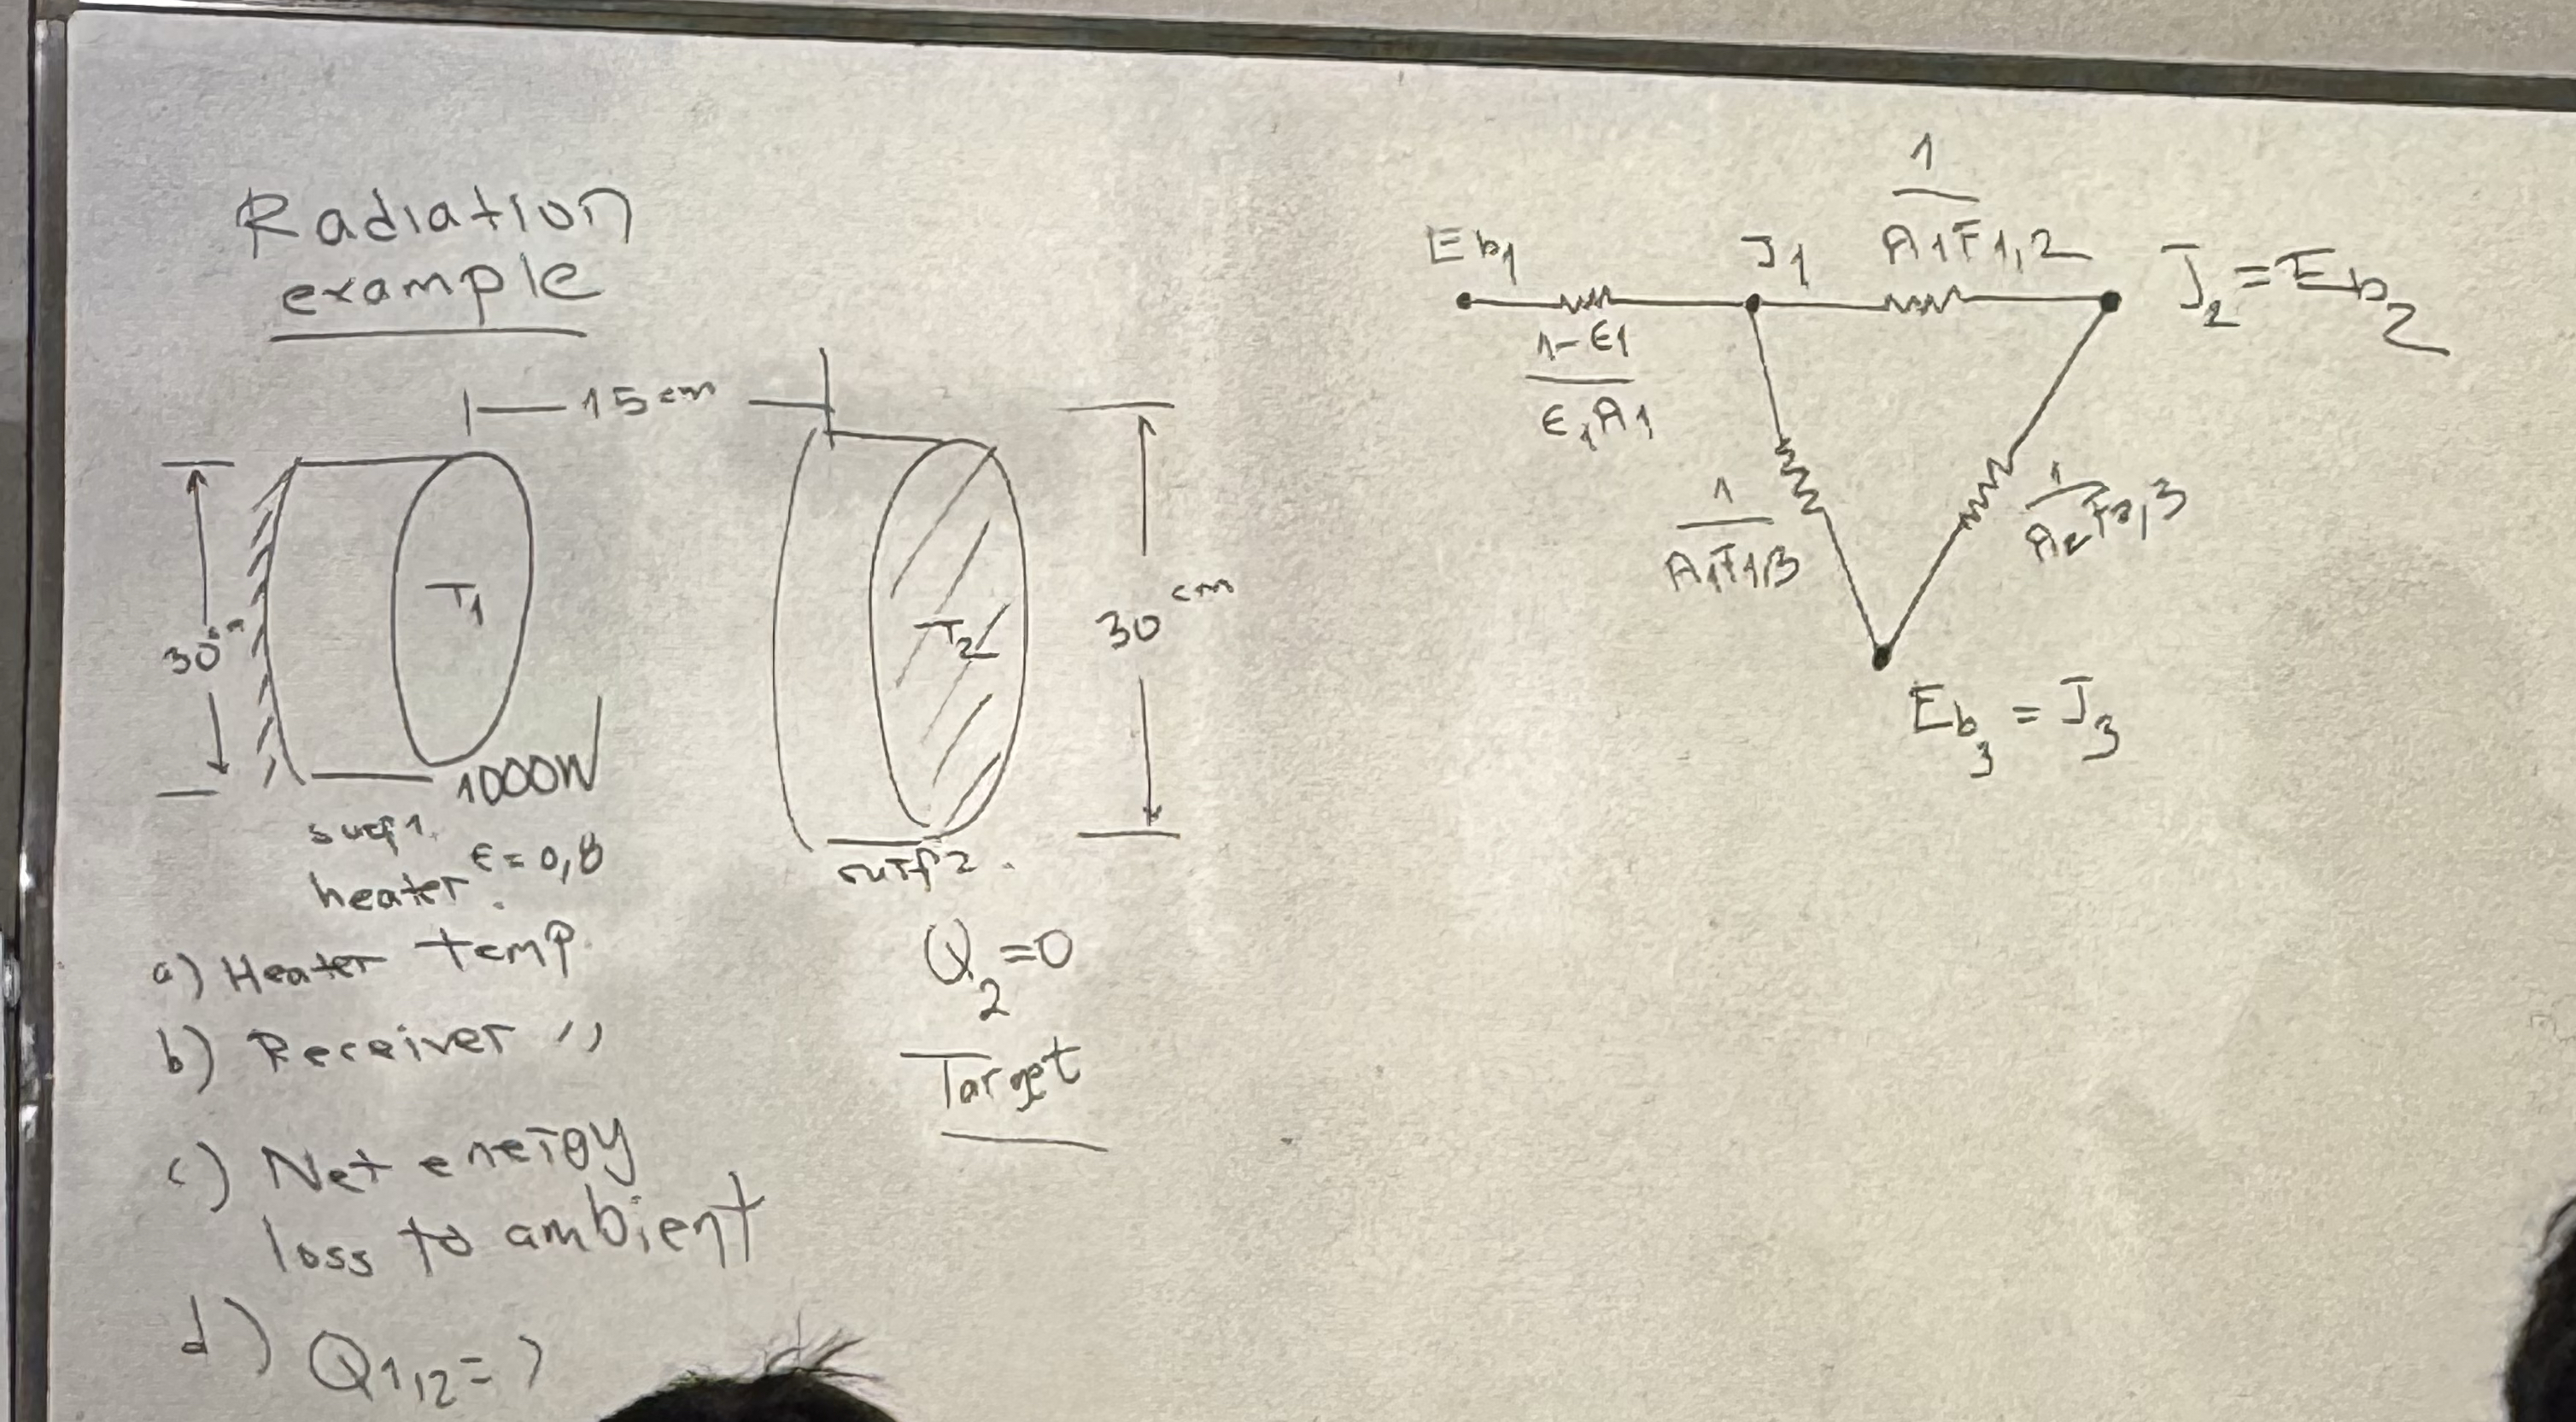 Radiation
example
15 cm
30 cm
T1
1000W
surf 1.
heater ε = 0,8
T2
30 cm
surf 2.
Q2 = 0
Target
a) Heater temp.
b) Receiver ,,
c) Net energy
loss to ambient
d) Q1,2 = ?
Eb1
1-ε1
ε1A1
J1
1
A1F1,2
J2 = Eb2
1
A1F1,3
1
A2F2,3
Eb3 = J3